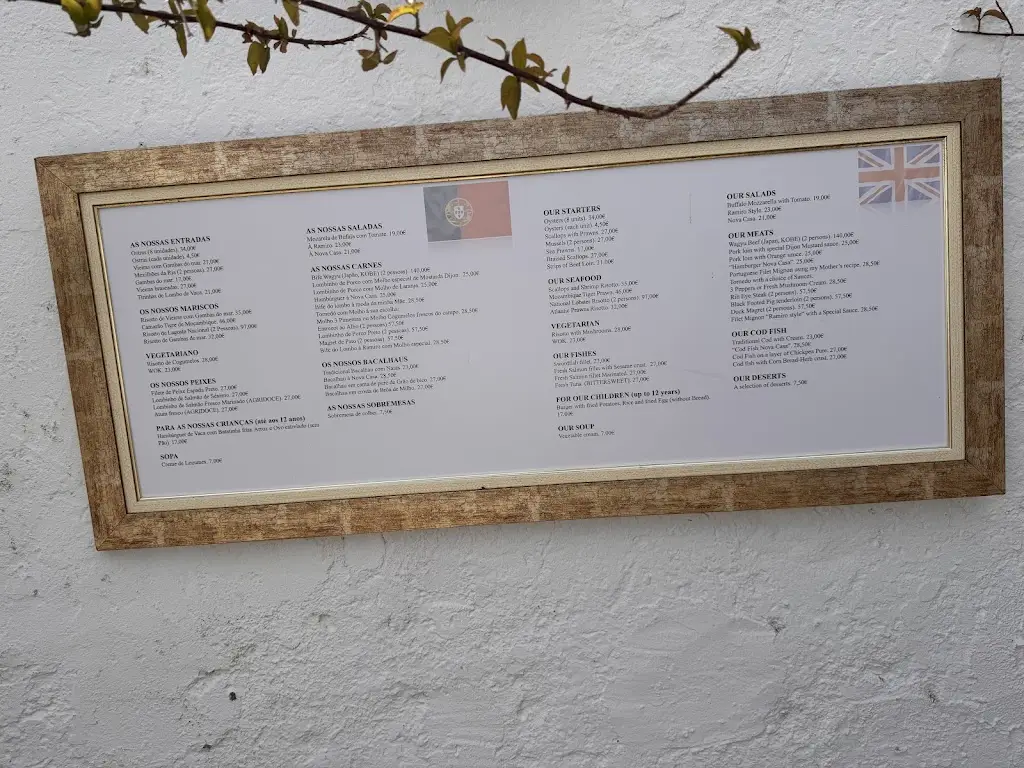 AS NOSSAS ENTRADAS
Ostras (6 unidades). 34,00€
Ostras (cada unidade). 4,50€
Vieiras com Gambas do mar. 27,00€
Mexilhões da Ria (2 pessoas). 27,00€
Gambas do mar. 17,00€
Vieiras braseadas. 27,00€
Tirinhas de Lombo de Vaca. 21,00€
OS NOSSOS MARISCOS
Risoto de Vieiras com Gambas do mar. 35,00€
Camarão Tigre de Moçambique. 46,00€
Risoto de Lagosta Nacional (2 Pessoas). 97,00€
Risoto de Gambas do mar. 32,00€
VEGETARIANO
Risoto de Cogumelos. 28,00€
WOK. 23,00€
OS NOSSOS PEIXES
Filete de Peixe Espada Preto. 27,00€
Lombinho de Salmão de Sésamo. 27,00€
Lombinho de Salmão Fresco Marinado (AGRIDOCE). 27,00€
Atum fresco (AGRIDOCE). 27,00€
PARA AS NOSSAS CRIANÇAS (até aos 12 anos)
Hambúrguer de Vaca com Batatinha frita Arroz e Ovo estrelado (sem
Pão). 17,00€
SOPA
Creme de Legumes. 7,00€
AS NOSSAS SALADAS
Mozarela de Búfala com Tomate. 19,00€
À Ramiro. 23,00€
À Nova Casa. 21,00€
AS NOSSAS CARNES
Bife Wagyu (Japão, KOBE) (2 pessoas). 140,00€
Lombinho de Porco com Molho especial de Mostarda Dijon. 25,00€
Lombinho de Porco com Molho de Laranja. 25,00€
Hambúrguer à Nova Casa. 25,00€
Bife do lombo à moda da minha Mãe. 28,50€
Tornedó com Molho à sua escolha:
Molho 3 Pimentas ou Molho Cogumelos frescos do campo. 28,50€
Entrecot ao Alho (2 pessoas) 57,50€
Lombinho de Porco Preto (2 pessoas). 57,50€
Magret de Pato (2 pessoas). 57,50€
Bife do Lombo à Ramiro com Molho especial. 28,50€
OS NOSSOS BACALHAUS
Tradicional Bacalhau com Natas. 23,00€
Bacalhau à Nova Casa. 28,50€
Bacalhau em cama de puré de Grão de bico. 27,00€
Bacalhau em crosta de Broa de Milho. 27,00€
AS NOSSAS SOBREMESAS
Sobremesa de colher. 7,50€
OUR STARTERS
Oysters (6 units). 34,00€
Oysters (each unit). 4,50€
Scallops with Prawns. 27,00€
Mussels (2 persons). 27,00€
Sea Prawns. 17,00€
Braised Scallops. 27,00€
Strips of Beef Loin. 21,00€
OUR SEAFOOD
Scallops and Shrimp Risotto. 35,00€
Mozambique Tiger Prawn. 46,00€
National Lobster Risotto (2 persons). 97,00€
Atlantic Prawns Risotto. 32,00€
VEGETARIAN
Risotto with Mushrooms. 28,00€
WOK. 23,00€
OUR FISHES
Swordfish fillet. 27,00€
Fresh Salmon fillet with Sesame crust. 27,00€
Fresh Salmon fillet Marinated. 27,00€
Fresh Tuna (BITTERSWEET). 27,00€
FOR OUR CHILDREN (up to 12 years)
Burger with fried Potatoes, Rice and fried Egg (without Bread).
17,00€
OUR SOUP
Vegetable cream. 7,00€
OUR SALADS
Buffalo Mozzarella with Tomato. 19,00€
Ramiro Style. 23,00€
Nova Casa. 21,00€
OUR MEATS
Wagyu Beef (Japan, KOBE) (2 persons). 140,00€
Pork loin with special Dijon Mustard sauce. 25,00€
Pork loin with Orange sauce. 25,00€
"Hamburger Nova Casa". 25,00€
Portuguese Filet Mignon using my Mother's recipe. 28,50€
Tornedo with a choice of Sauces:
3 Peppers or Fresh Mushroom Cream. 28,50€
Rib Eye Steak (2 persons). 57,50€
Black Footed Pig tenderloin (2 persons). 57,50€
Duck Magret (2 persons). 57,50€
Filet Mignon "Ramiro style" with a Special Sauce. 28,50€
OUR COD FISH
Traditional Cod with Cream. 23,00€
"Cod Fish Nova Casa". 28,50€
Cod Fish on a layer of Chickpea Pure. 27,00€
Cod Fish with Corn Bread-Herb crust. 27,00€
OUR DESERTS
A selection of deserts. 7,50€